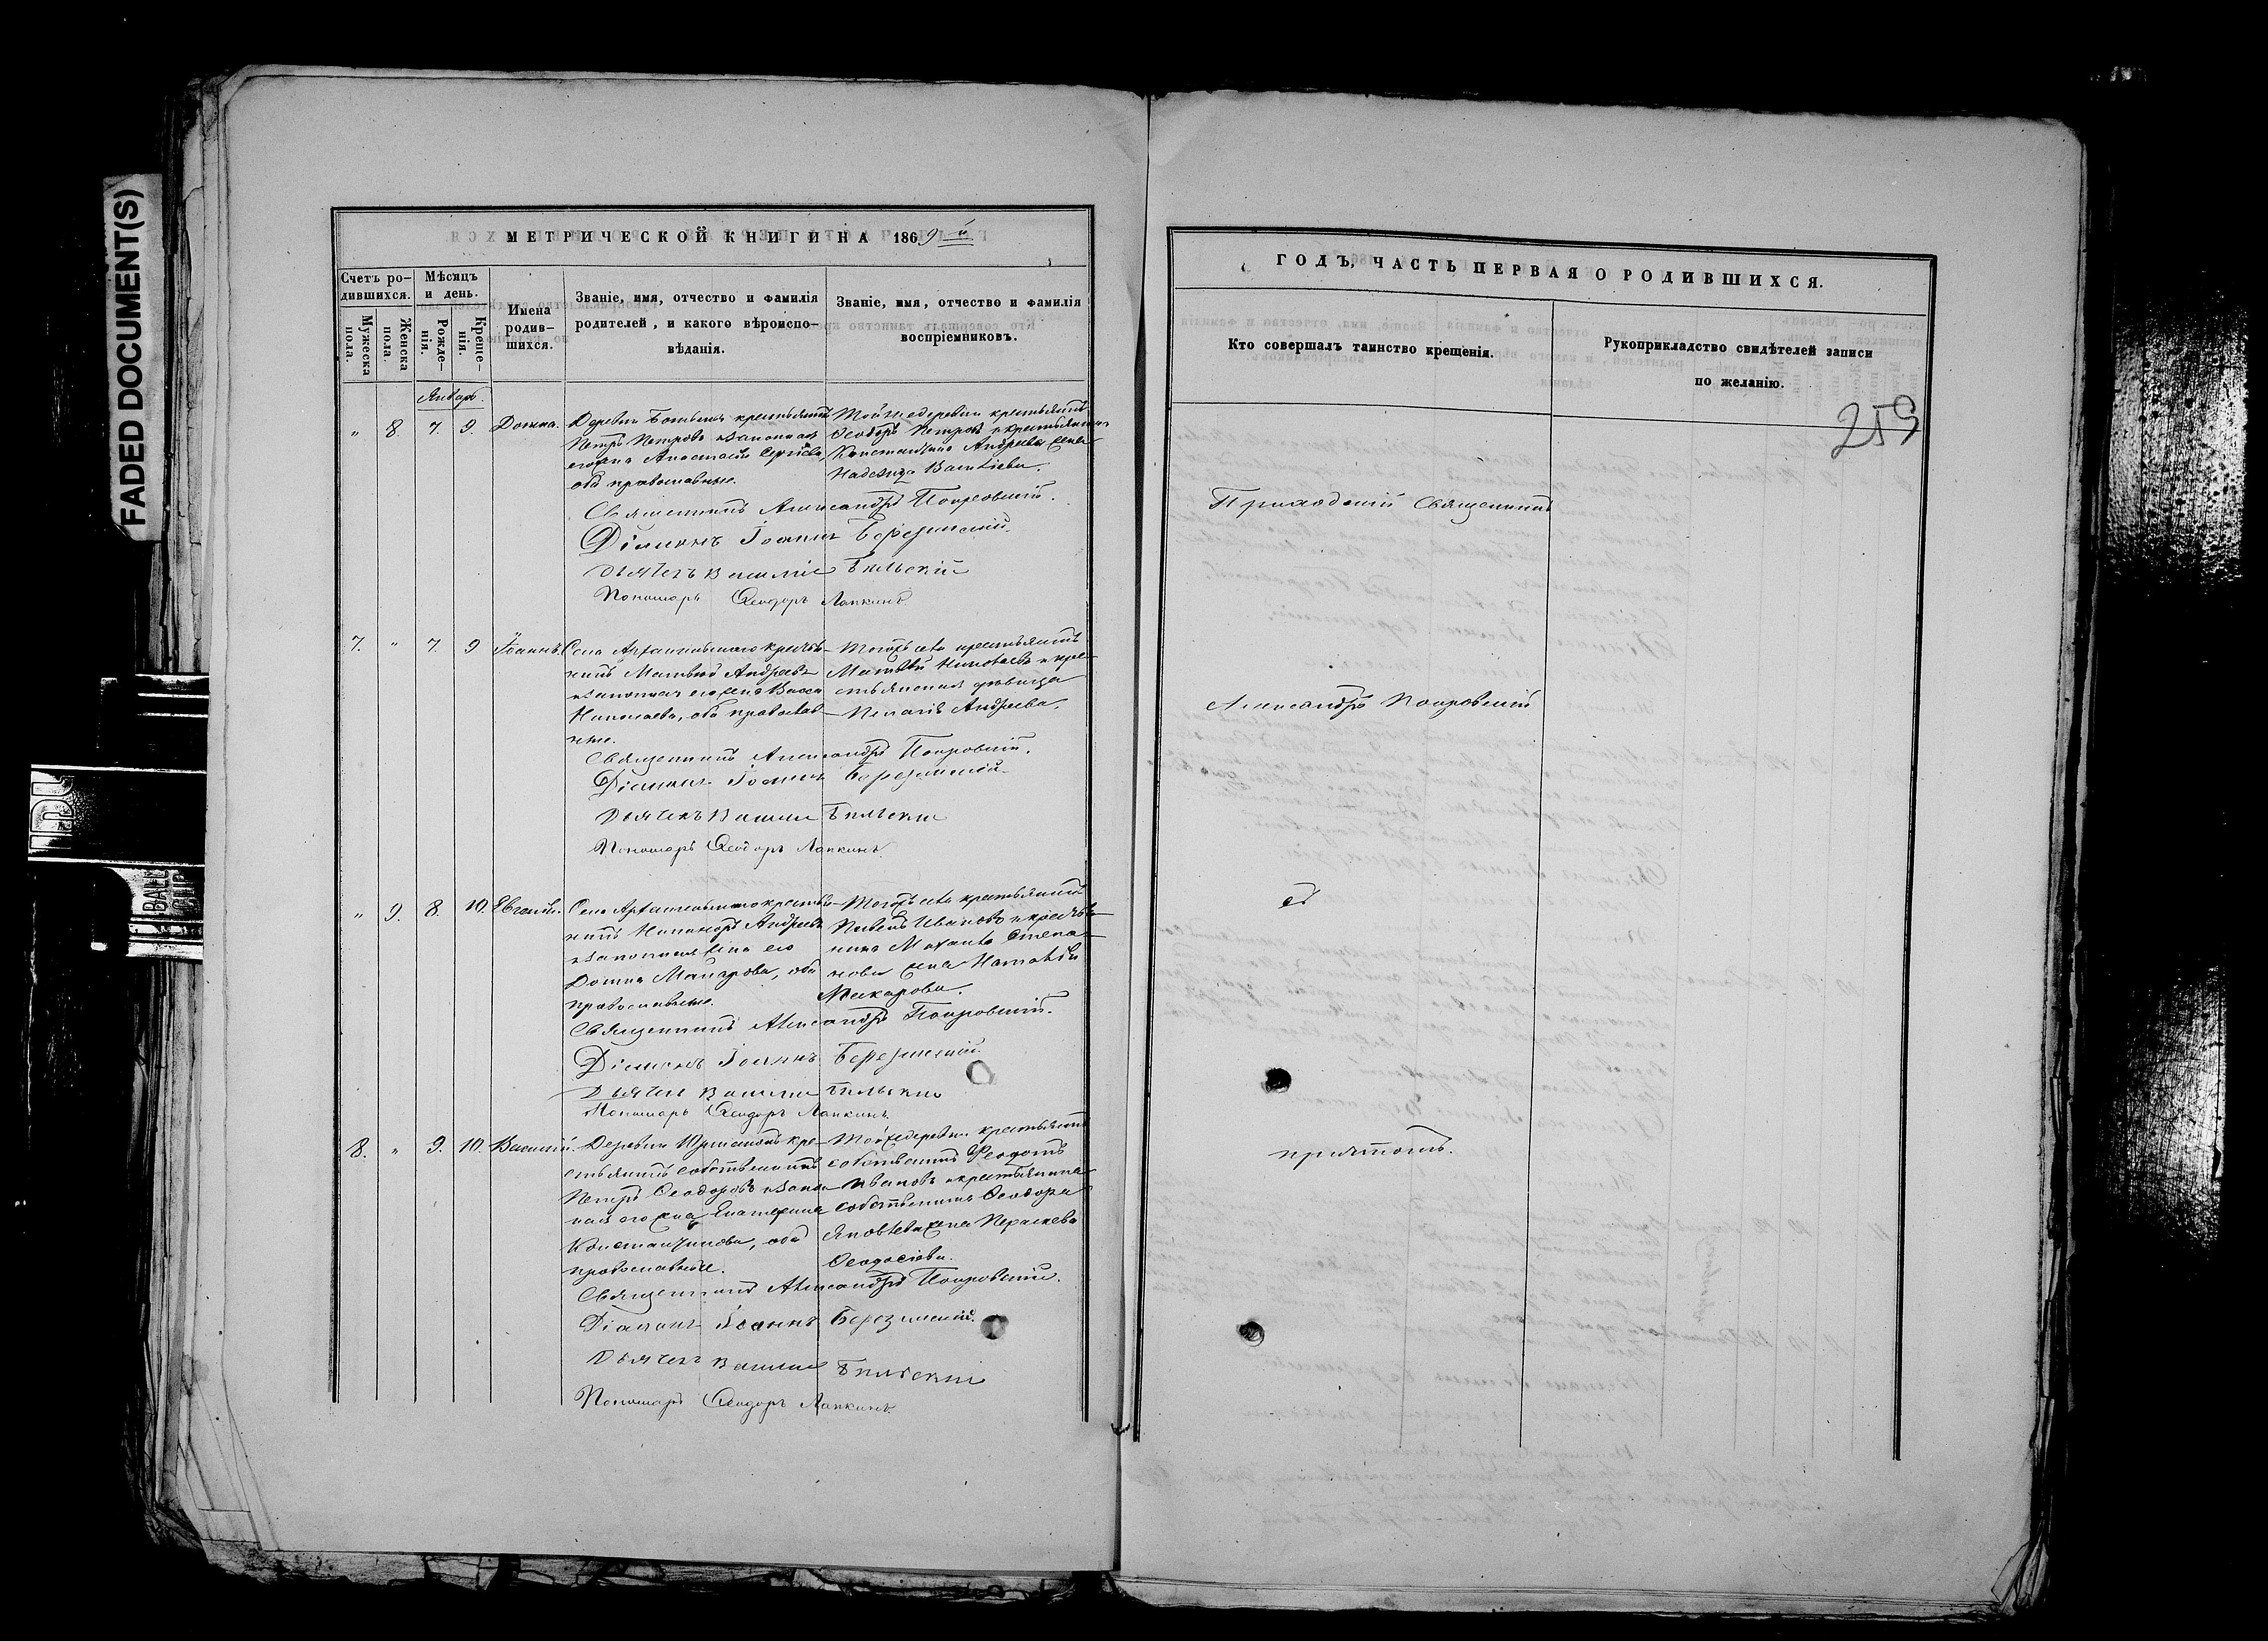 FADED DOCUMENT(S)
МЕТРИЧЕСКОЙ КНИГИ НА 1869й
Счетъ ро-
дившихся.
Мужеска пола.
Женска пола.
Мѣсяцъ
и день.
Рожде-
нія.
Креще-
нія.
Имена
родив-
шихся.
Званіе, имя, отчество и фамилія
родителей, и какого вѣроиспо-
вѣданія.
Званіе, имя, отчество и фамилія
воспріемниковъ.
Январь.
„ 8. 7. 9. Домна.
Деревни крестьянинъ
Петръ Петровъ и законная
его жена Анастасія Сергіева,
оба православные.
Тойже деревни крестьянинъ
Ѳеодоръ Петровъ и крестьянина
Константина Андреева жена
Надежда Васильева.
Священникъ Александръ Покровскій.
Діаконъ Іоаннъ Березинскій
Дьячекъ Василій Бѣльскій
Пономарь Ѳеодоръ Лапкинъ
7. „ 7. 9 Іоаннъ.
Села крестья-
нинъ Матвей Андреевъ
и законная его жена Васса
Николаева, оба православ-
ные.
Тогоже села крестьянинъ
Матвѣй Николаевъ и кре-
стьянская дѣвица
Пелагія Андреева.
Священникъ Александръ Покровскій.
Діаконъ Іоаннъ Березинскій
Дьячекъ Василій Бѣльскій
Пономарь Ѳеодоръ Лапкинъ.
„ 9. 8. 10. Евгенія.
Села крестья-
нинъ Никаноръ Андреевъ
и законная жена его
Домна оба
православные.
Тогоже села крестьянинъ
Павелъ Ивановъ и крестья-
нина Степа-
нова жена Наталія
Макарова.
Священникъ Александръ Покровскій.
Діаконъ Іоаннъ Березинскій
Дьячекъ Василій Бѣльскій
Пономарь Ѳеодоръ Лапкинъ
8. „ 9. 10. Василій.
Деревни кре-
стьянинъ собственникъ
Петръ Ѳеодоровъ и закон-
ная его жена Екатерина
Константинова, оба
православные.
Тойже деревни крестьянинъ
собственникъ Ѳеодотъ
Ивановъ и крестьянина
собственника Ѳеодора
Яковлева жена Параскева
Ѳеодосіева.
Священникъ Александръ Покровскій.
Діаконъ Іоаннъ Березинскій.
Дьячекъ Василій Бѣльскій
Пономарь Ѳеодоръ Лапкинъ.
ГОДЪ, ЧАСТЬ ПЕРВАЯ О РОДИВШИХСЯ.
Кто совершалъ таинство крещенія.
Рукоприкладство свидѣтелей записи
по желанію.
259
Приходскій Священникъ
Александръ Покровскій
съ
причтомъ.